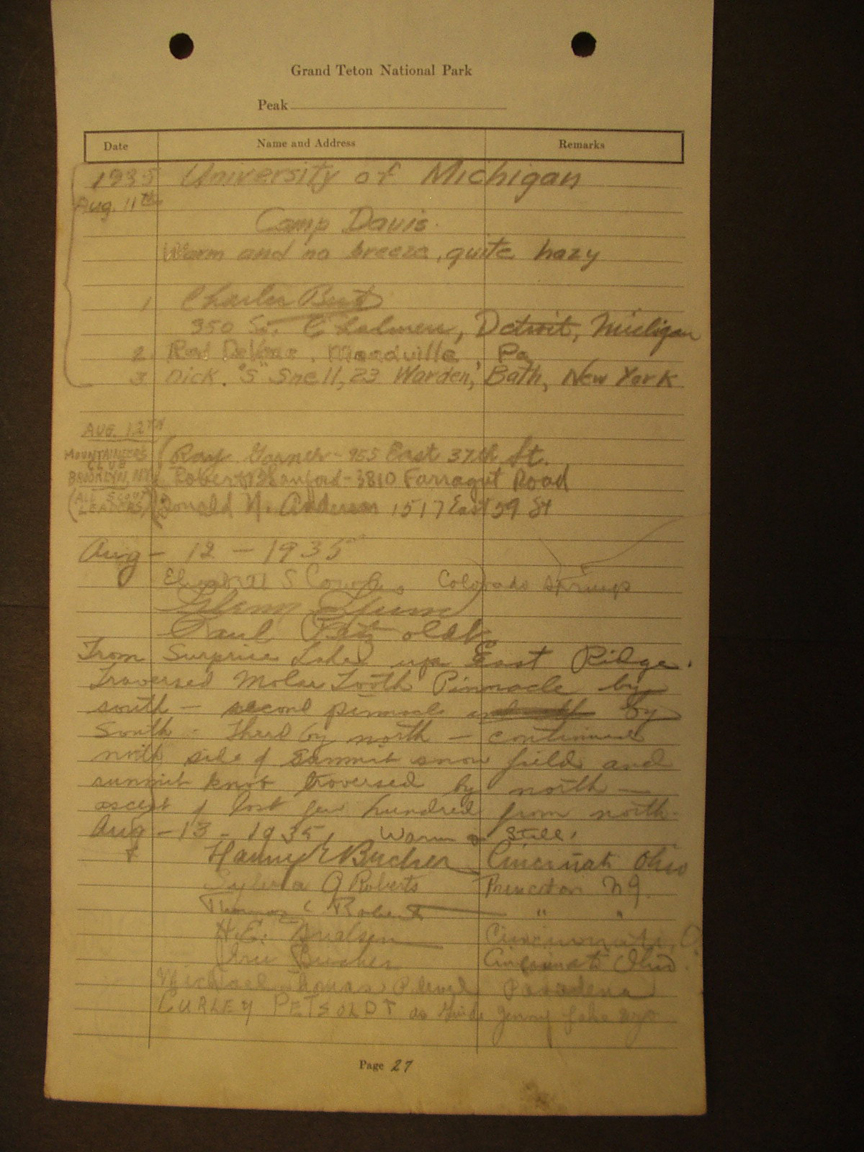 Grand Teton National Park
Peak
Date Name and Address Remarks
1935 University of Michigan
Aug. 11th
Camp Davis.
Warm and no breeze, quite hazy
1 Charles
350 So. Detroit, Michigan
2. Rod Meadville, Pa
3 Dick "S" Snell, 23 Warden, Bath, New York
AUG. 12TH
MOUNTAINEERS CLUB
BROOKLYN, NY
(ALL SCOUT LEADERS)
Ray Garner - 955 East 37th St.
Robert - 3810 Farragut Road
Donald N. Anderson 1517 East 59 St
Aug - 12 - 1935
Elizabeth S Cowles Colorado Springs
Glenn Exum
Paul Petzoldt
From Surprise Lake up East Ridge.
Traversed Molar Tooth Pinnacle by
south - second pinnacle by
South - Third by north - continued
north side of summit snow field and
summit knob traversed by north -
except last few hundred from north.
Aug - 13 - 1935, Warm & Still.
E Bucher Cincinnati Ohio
G Roberts Princeton NJ.
Thomas C Roberts " "
H.E. Cincinnati, O
Bucher Cincinnati Ohio.
Michael Thomas Pasadena
CURLEY PETSOLDT as Guide Jenny Lake Wyo
Page 27